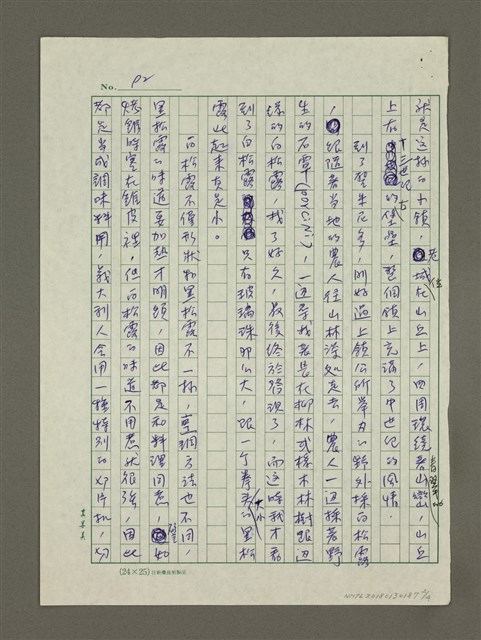 No. P2
就是這樣的小鎮，老城在山丘上，四周環繞著青翠山巒，山丘
上有十三世紀的古堡壘，整個鎮上充滿了中世紀的風情。
到了聖米尼多，剛好遇上鎮公所舉辦的野外採白松露
，跟隨著當地的農人往山林深處走去，農人一邊採著野
生的石蕈(porcini)，一邊尋找著長在柳林或橡木林樹跟邊
緣的白松露，找了好久，最後終於發現了，而這時我才看
到了白松露，只有玻璃珠那麼大，跟一個拳頭大小的黑松
露比起來真是小。
白松露不僅形狀和黑松露不一樣，烹調方法也不同，
黑松露的味道要加熱才明顯，因此都是和料理同煮，譬如
烤雞時塞在雞皮裡，但白松露的味道不用煮就很強，因此
都是當成調味料用，義大利人會用一種特別的切片機，切
(24×25)